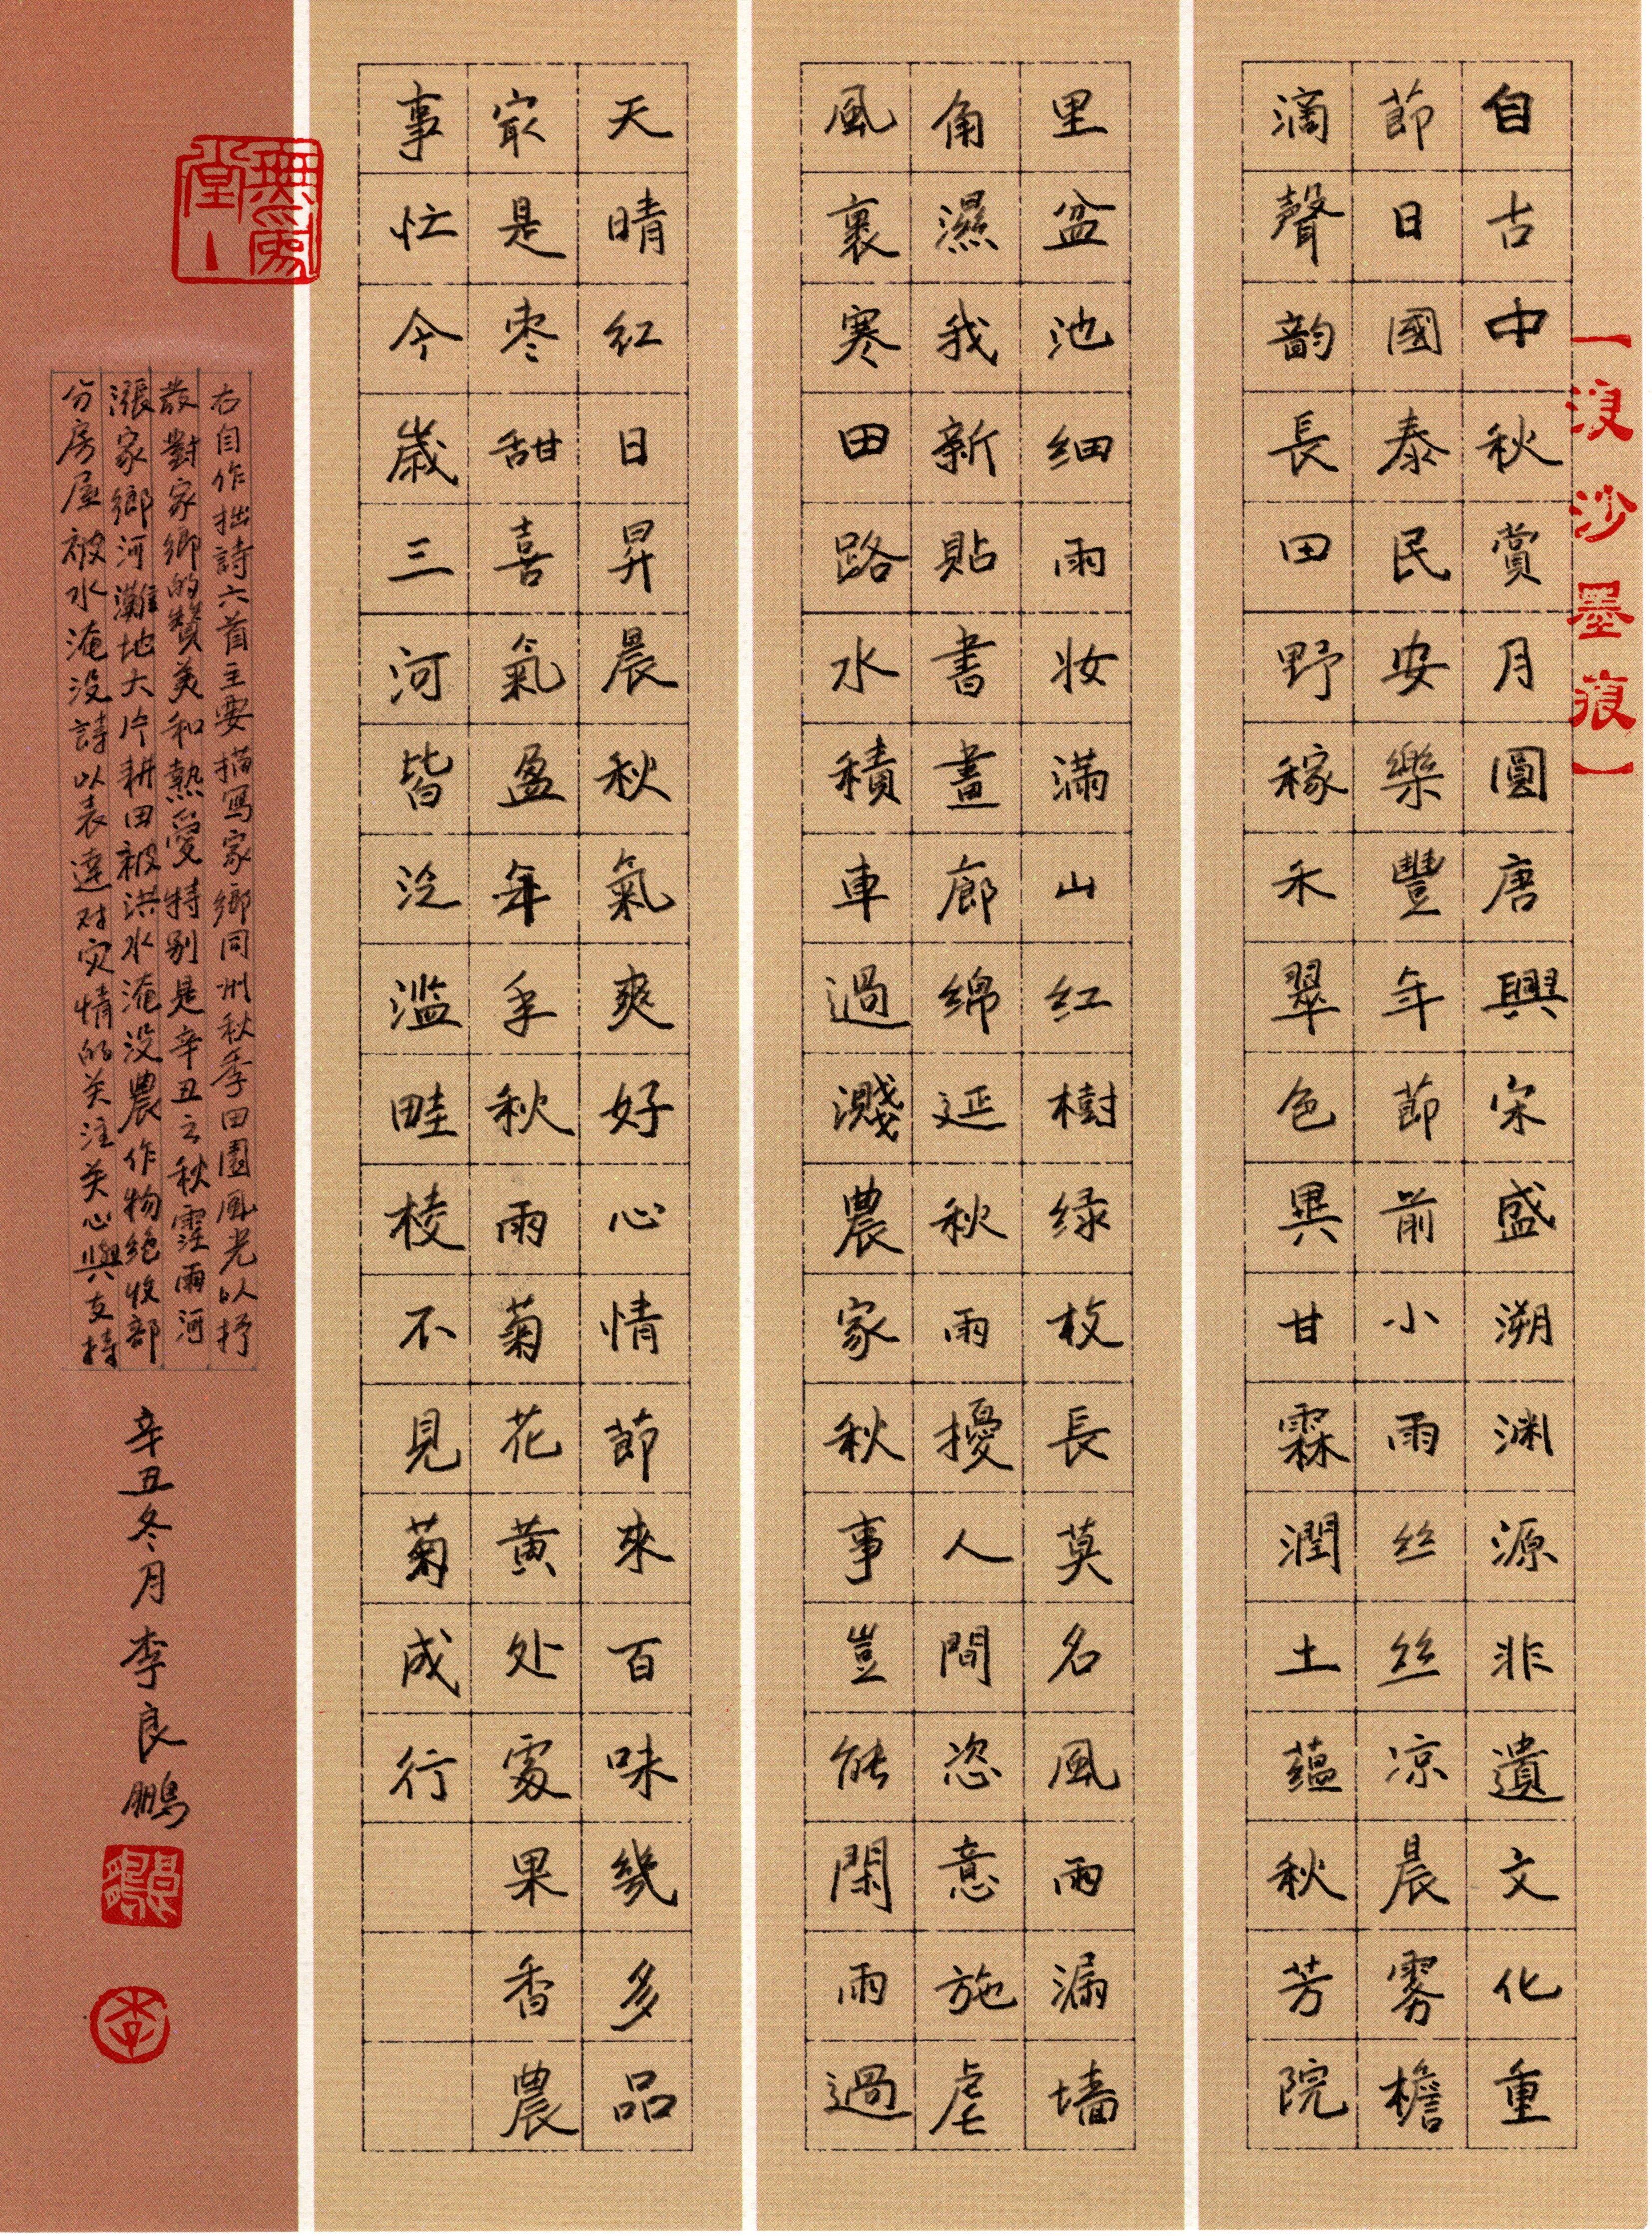 一浸沙墨痕一
自古中秋賞月圓唐興宋盛溯渊源非遺文化重
節日國泰民安樂豐年節前小雨丝丝凉晨雾檐
滴聲韵長田野稼禾翠色異甘霖潤土蘊秋芳院
里盆池细雨妆滿山红樹绿枝長莫名風雨漏墻
角濕我新貼書畫廊绵延秋雨擾人間恣意施虐
風裹寒田路水積車過濺農家秋事豈能閑雨過
天晴红日昇晨秋氣爽好心情節來百味幾多品
最是枣甜喜氣盈年年秋雨菊花黄处處果香農
事忙今歲三河皆泛滥畦棱不見菊成行
無為堂
右自作拙詩六首主要描寫家鄉同州秋季田園風光以抒
發對家鄉的赞美和熱愛特别是辛丑之秋霪雨河
漲家鄉河灘地大片耕田被洪水淹没農作物绝收部
分房屋被水淹没詩以表達对灾情的关注关心與支持
辛丑冬月李良鵬
李